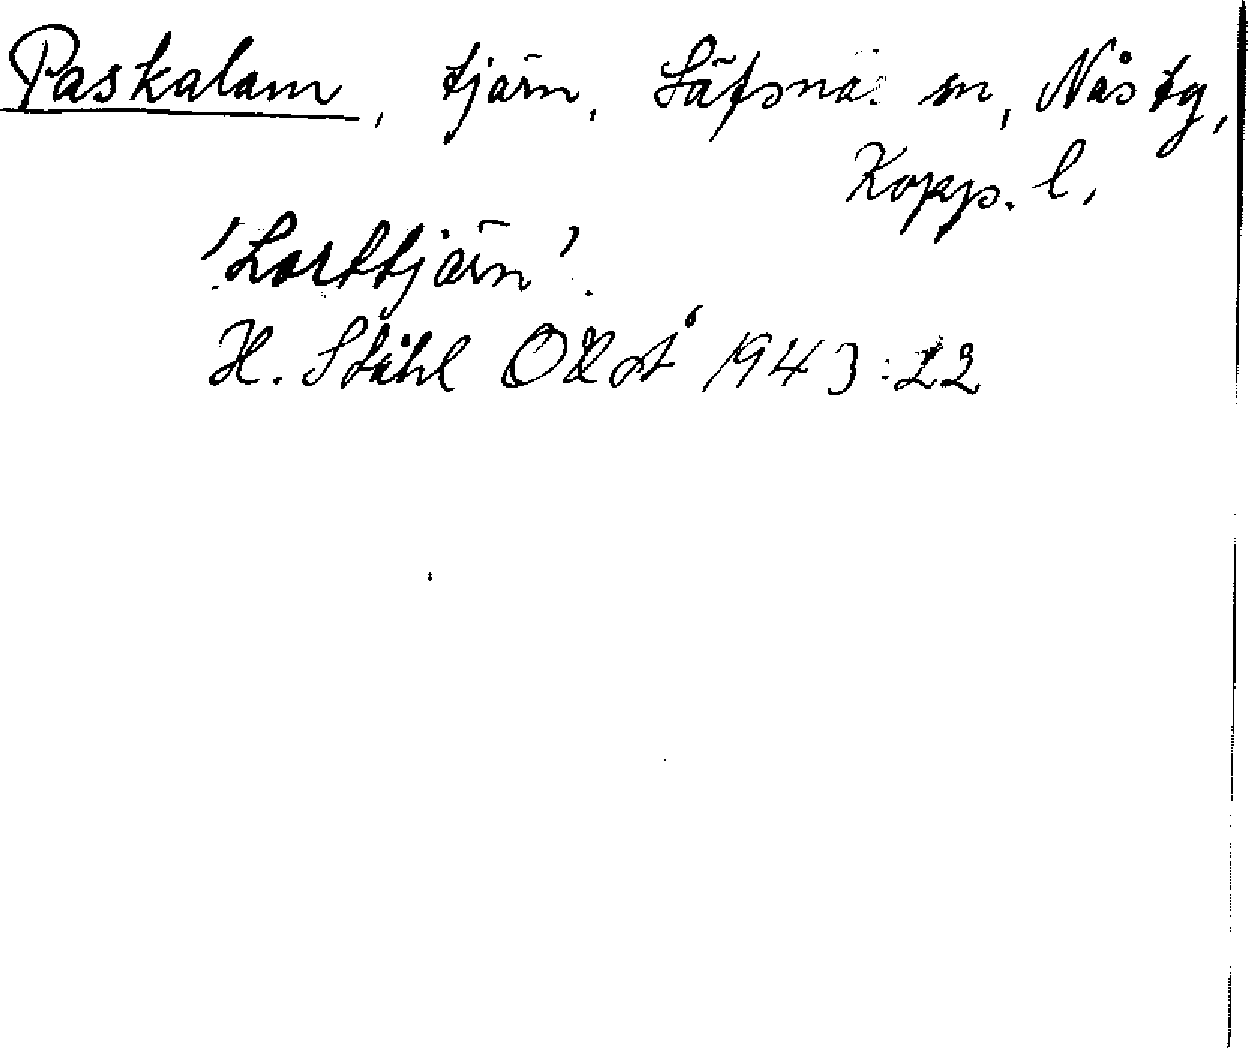 Paskalam, tjärn, Säfsnäs sn, Nås tg,
Kopp. l.
'Lorttjärn'.
H. Ståhl OUÅ 1943:22